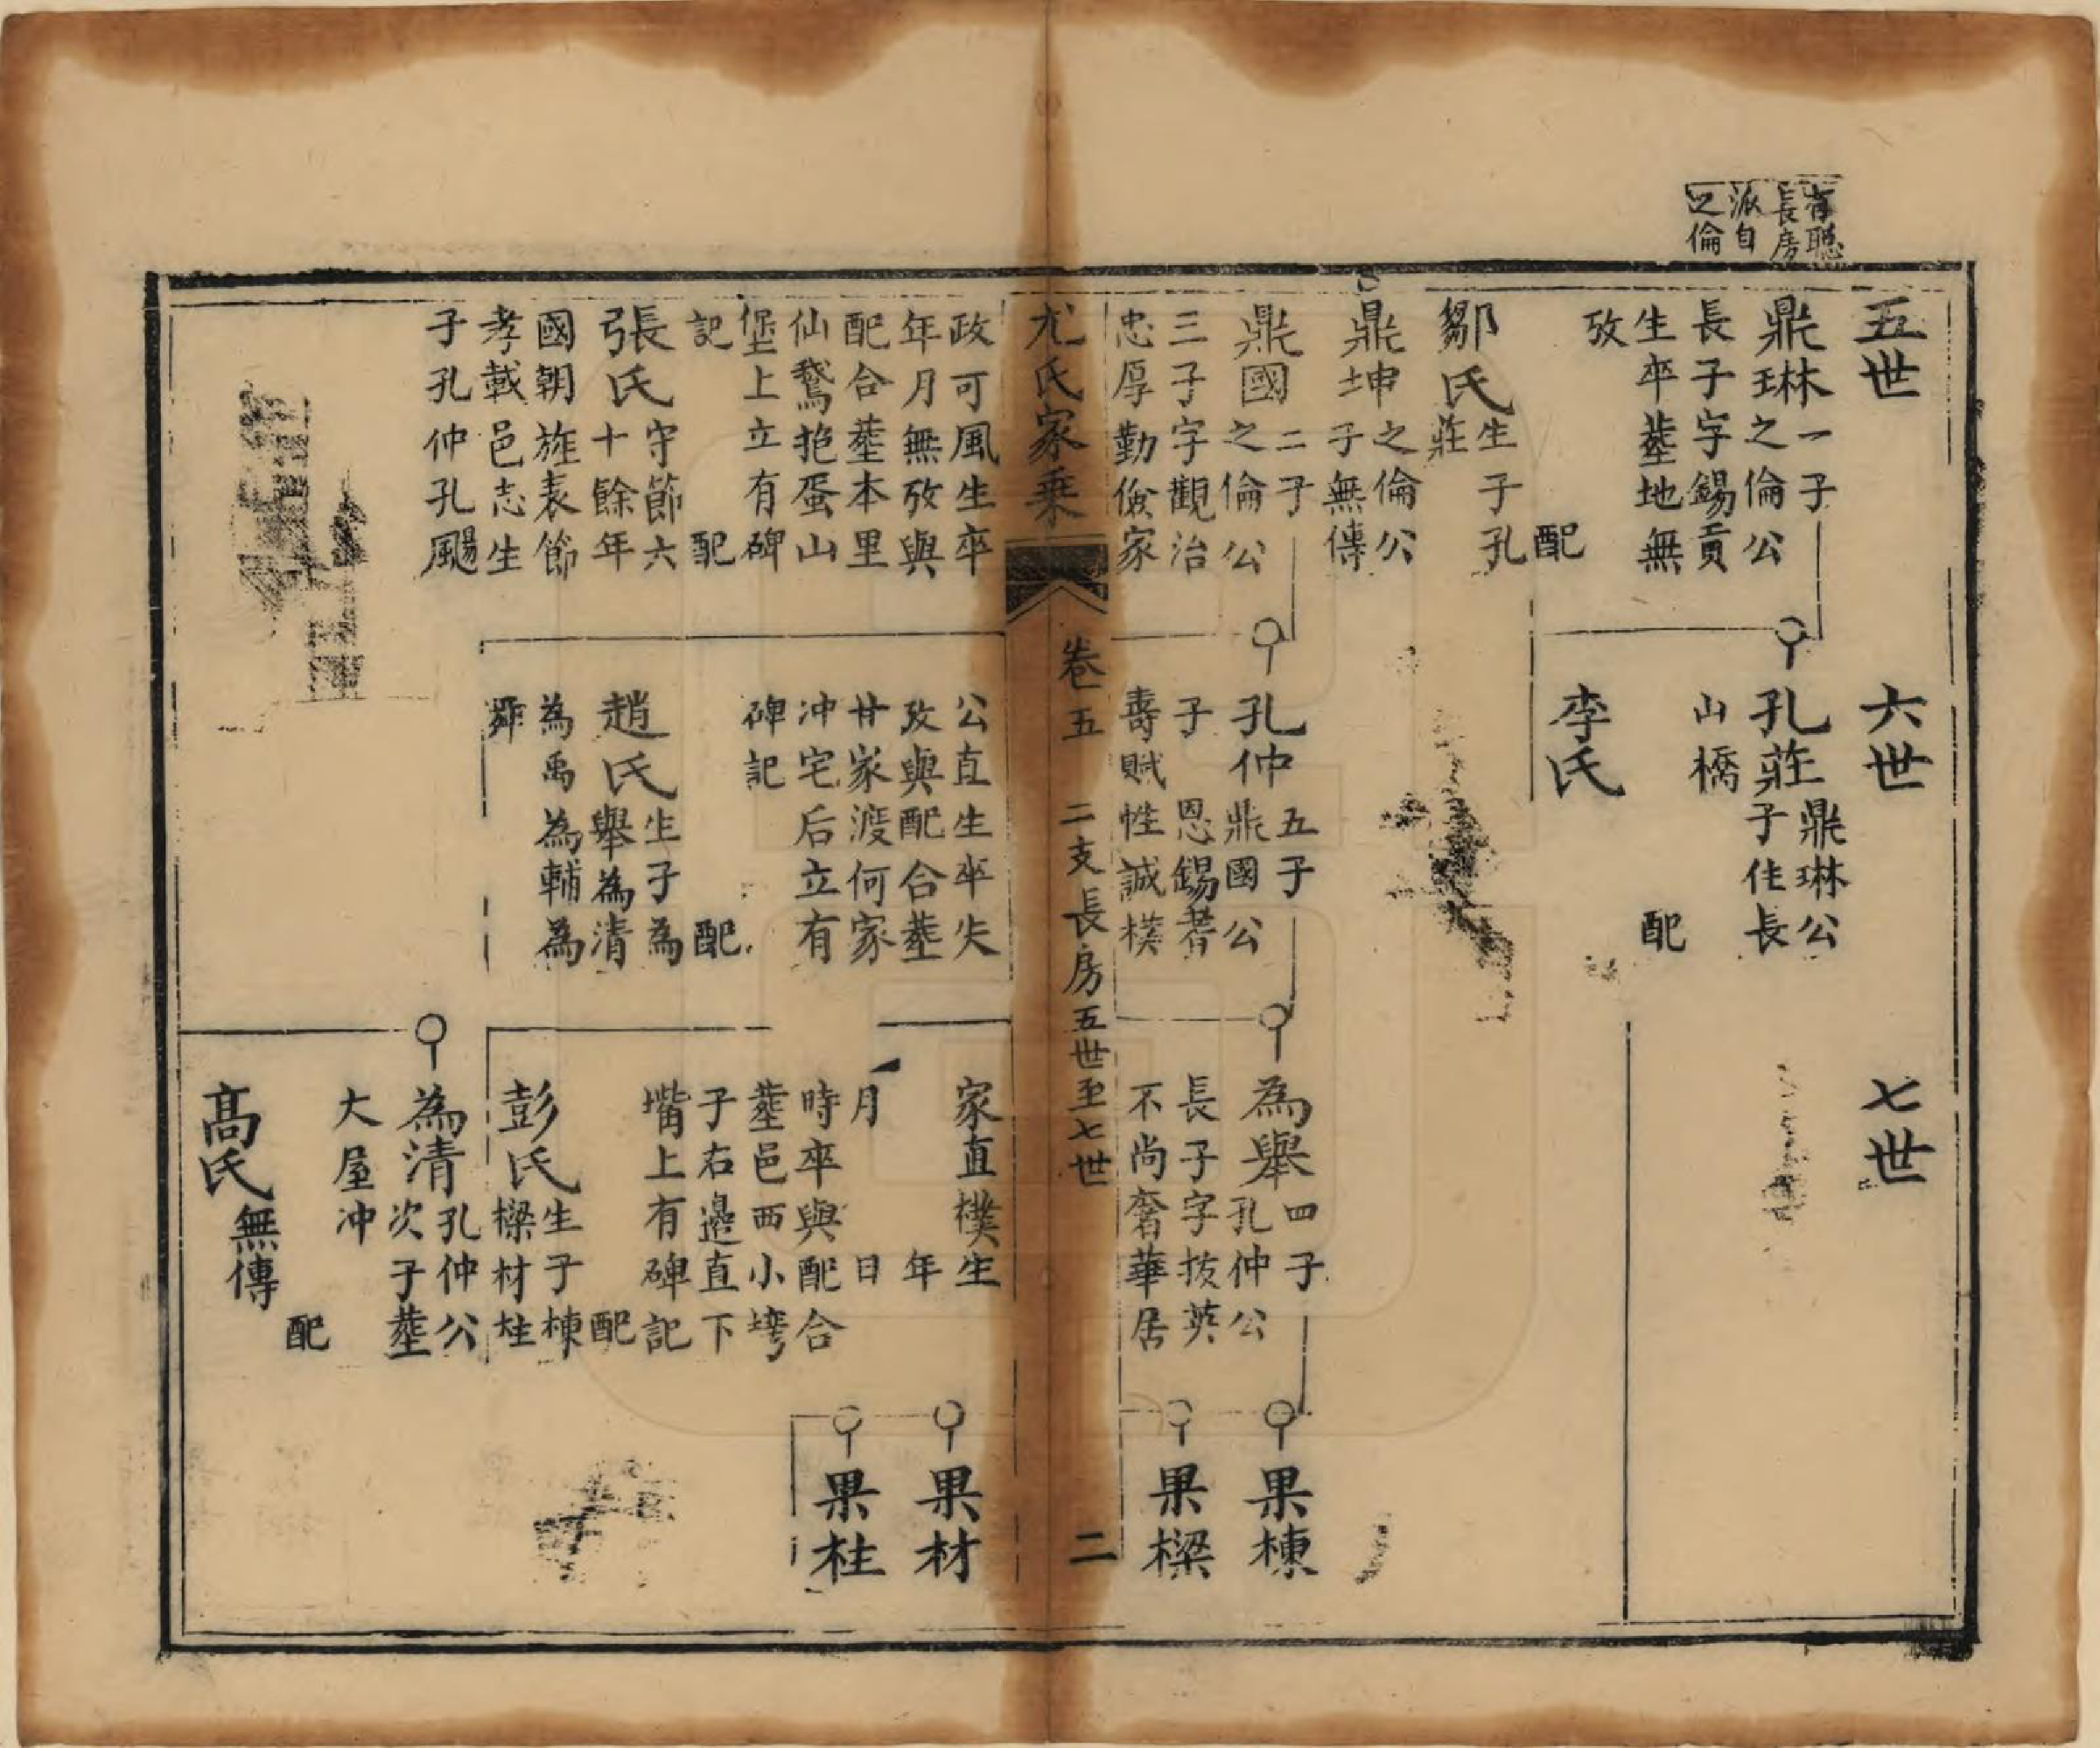 有聰
長房
派自
之倫
五世
鼎琳一子
之倫公
長子字錫貢
生卒塟地無
攷
配
鄒氏生子孔
莊
鼎坤之倫公
子無傳
鼎國二子
之倫公
三子字觀治
忠厚勤儉家
尤氏家乘
卷五
二支長房五世至七世
二
政可風生卒
年月無攷與
配合塟本里
仙鵞抱蛋山
堡上立有碑
記
配
張氏守節六
十餘年
國朝旌表節
孝載邑志生
子孔仲孔颺
六世
孔莊鼎琳公
子住長
山橋
配
李氏
孔仲五子
鼎國公
子 恩錫耆
壽賦性誠樸
公直生卒失
攷與配合塟
廿家渡何家
冲宅后立有
碑記
配
趙氏生子為
舉為清
為禹為輔為
舜
七世
為舉四子
孔仲公
長子字拔英
不尚奢華居
家直樸生
年
月 日
時卒與配合
塟邑西小塆
子右邊直下
嘴上有碑記
配
彭氏生子棟
樑材柱
為清孔仲公
次子塟
大屋冲
配
高氏無傳
果棟
果樑
果材
果柱